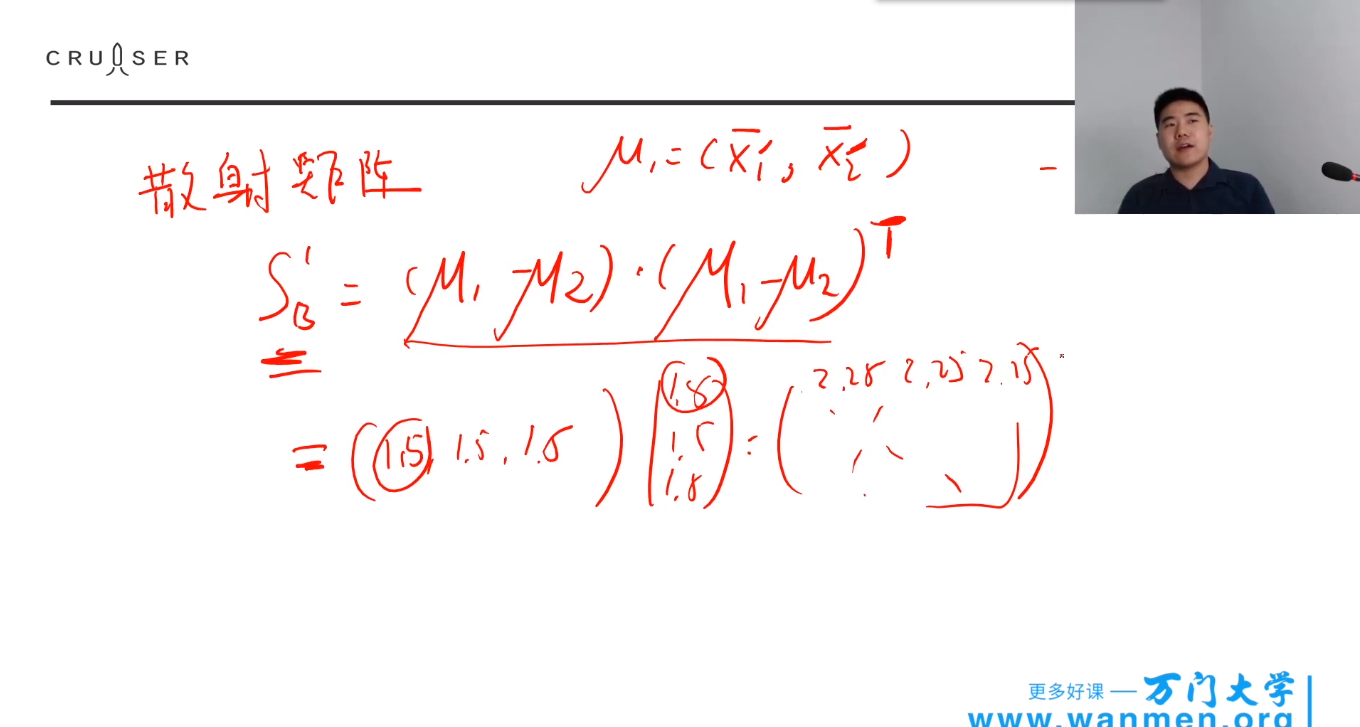 CRUISER
散射矩阵
μ₁=(x̄₁, x̄₂)
S_B' = (μ₁-μ₂)·(μ₁-μ₂)ᵀ
= (1.5, 1.5, 1.5) (1.5 1.5 1.5) = (2.25 2.25 2.25)
更多好课 — 万门大学
www.wanmen.org